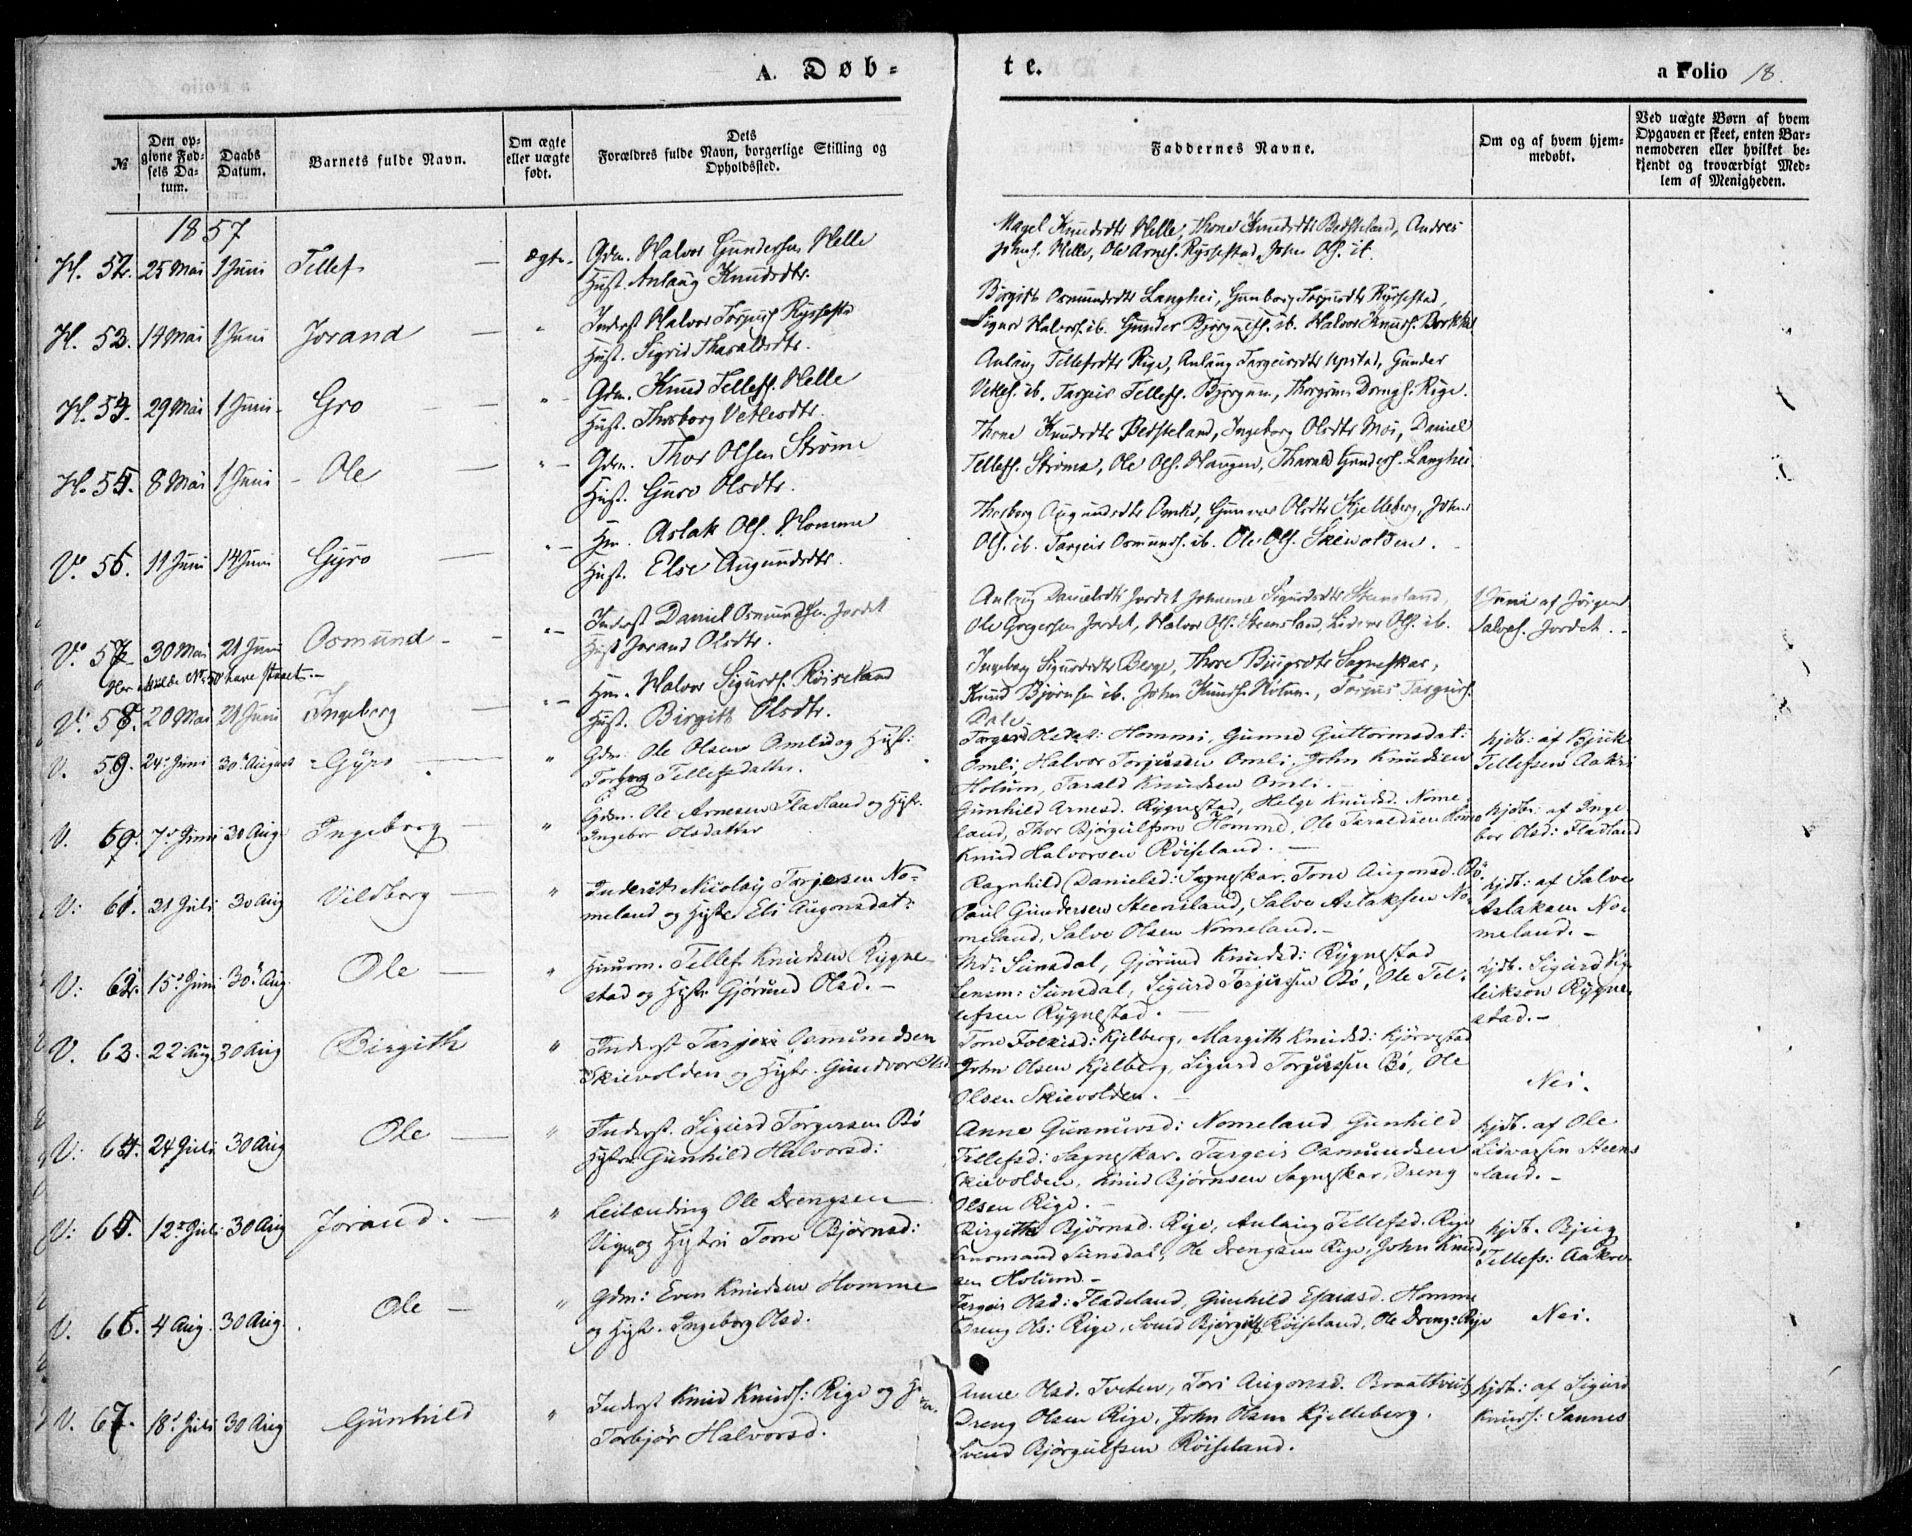 A. Døb-
te.
a Folio 18.
№
Den opgivne Fødsels Datum.
Daabs Datum.
Barnets fulde Navn.
Om ægte eller uægte født.
Dets Forældres fulde Navn, borgerlige Stilling og Opholdssted.
Faddernes Navne.
Om og af hvem hjemmedøbt.
Ved uægte Børn af hvem Opgaven er skeet, enten Barnemoderen eller hvilket bekjendt og troværdigt Medlem af Menigheden.
1857
H. 52. 25 Mai 1 Juni Tellef ægte. Gdm. Halvor Gundersen Helle
Hust. Anlaug Knudsdtr.
Magel Knudsdtr Helle, Thone Knudsdtr Bedsteland, Andres
Johns. Helle, Ole Arnes. Ryssestad, John Ols. ib.
H. 53. 14 Mai 1 Juni Jorand Inderst Halvor Torjus. Ryssestad
Hust. Sigrid Tharaldsdtr.
Birgith Osmundsdtr Langhei, Gunborg Torjusdtr Ryssestad,
Sigurd Halvors. ib. Gunder Bjørgulfs. ib. Halvor Knuds.
H. 54. 29 Mai 1 Juni Gro Gdm. Knud Tellefs. Helle
Hust. Thorborg Vetlesdtr.
Anlaug Tellefsdtr Rige, Anlaug Targeirsdtr Upstad, Gunder
Vetles. ib. Targeir Tellefs. Bjørgum, Thorgrim Drengs. Rige.
H. 55. 8 Mai 1 Juni Ole Gdm. Thor Olsen Strøme
Hust. Guro Olsdtr.
Thone Knudsdtr Bedsteland, Ingeborg Olsdtr Moi, Daniel
Tellefs. Strøme, Ole Ols. Haugen, Tharald Gunders. Langhei.
V. 56. 11 Juni 14 Juni Gyro Hm. Aslak Ols. Homme
Hust. Else Augundsdtr.
Thorborg Augundsdtr Omlid, Gunvor Olsdtr Kjelleberg, John
Ols. ib. Targeir Osmunds. ib. Ole Ols. Skievolden.
V. 57. 30 Mai 21 Juni Osmund Inderst Daniel Osmundsn. Jordet
Hust. Jorand Olsdtr.
Anlaug Danielsdtr Jordet Johanne Sigurdsdtr Steensland,
Ole Gregersen Jordet, Halvor Ols. Steensland, Lidvor Ols. ib.
1 Juni af Jørgen
Salves. Jordet.
Her skulde No. 50 have staaet.
V. 58. 20 Mai 21 Juni Ingeborg Hm. Halvor Sigurds. Røiseland
Hust. Birgith Olsdtr.
Ingeborg Sigurdsdtr Berge, Thore Bjugsdtr Sagneskar,
Knud Bjørnsen ib. John Knuds. Holum, Torjus Targeirs.
Dale.
V. 59. 24. Juni 30. August Gyro Gdm. Ole Olsen Omlid og Hust:
Torborg Tellefsdatter.
Targerd Olsdat: Homme, Gunne Guttormsdat:
Omli, Halvor Torjussen Omli, John Knudsen
Holum, Tarald Knudsen Omli.
hjdb: af Bjuk
Tellefsen Aakre
V. 60. 7. Juni 30 Aug. Ingeborg Gdm. Ole Arnesen Fladland og Hustr.
Ingebor Olsdatter
Gunhild Arnesd. Rygnestad, Helge Knudsd. Nomeland,
Thor Bjørgulfson Homme, Ole Taraldsen
Knud Halvorsen Røiseland.
hjdb: af Ingebor
Olsd: Fladland
V: 61. 21 Juli 30 Aug Vildborg Inderst Nicolay Tarjesen Nomeland
og Hustr. Eli Augonsdat:
Ragnhild Danielsd: Sagneskar. Tone Augonsd. Bø.
Paul Gundersen Steensland, Salve Aslaksen Nomeland,
Salve Olsen Nomeland.
hjdb: af Salve
Aslaksen Nomeland.
V: 62. 15. Juni 30. Aug. Ole Huusm. Tellef Knudsen Rygnestad
og Hustr Gjørund Olsd.
Md: Sunsdal, Gjørund Knudsd: Rygnestad
Lensm: Sunsdal, Sigurd Torjussen Bø, Ole Tellefsen
Rygnestad.
hjdb. Sigurd
Rygnestad.
V. 63. 22 Aug. 30 Aug Birgith Inderst Tarjeir Osmundsen
Skievolden og Hustr. Gundvor Olsd.
Tone Folkisd: Kjelberg, Margith Knudsd:
John Olsen Kjelberg, Sigurd Torjussen Bø, Ole
Olsen Skievolden.
Nei.
V: 64. 24 Juli 30 Aug Ole Inderst. Sigurd Torgersen Bø
Hustru Gunhild Halvorsd:
Anne Gunnursd: Nomeland Gunhild
Tellefsd: Sagneskar. Targeir Osmundsen
Skievolden, Knud Bjørnsen Sagneskar, Dreng
Olsen Rige.
hjdb. af Ole
Lidvorsen Steensland.
V: 65. 12. Juli 30 Aug Jorand. Leilænding Ole Drengsen
Vigen og Hustru Tone Bjørnsd:
Birgithe Bjørnsd. Rige, Anlaug Tellefsd. Rige
Lensmand Sunsdal, Ole Drengsen Rige, John Knudsen
Holum.
hjdb. Bjug
Tellefs: Aakre.
V. 66. 4 Aug. 30 Aug. Ole Gdm: Even Knudsen Homme
og Hustr. Ingeborg Olsd.
Targeir Olsd: Fladeland, Gunhild Esaiasd. Homme
Dreng Ols: Rige, Svend Bjørgulfs Røiseland, Ole Drengs: Rige
Nei.
V. 67. 18. Juli 30 Aug Gunhild Inderst Knud Knuds: Rige og
Torbjør Halvorsd.
Anne Olsd. Tveten, Tori Augonsd. Braattveit
Dreng Olsen Rige, John Olsen Kjelleberg.
Svend Bjørgulfsen Røiseland.
hjdb: af Sigurd
Knuds: Sannes